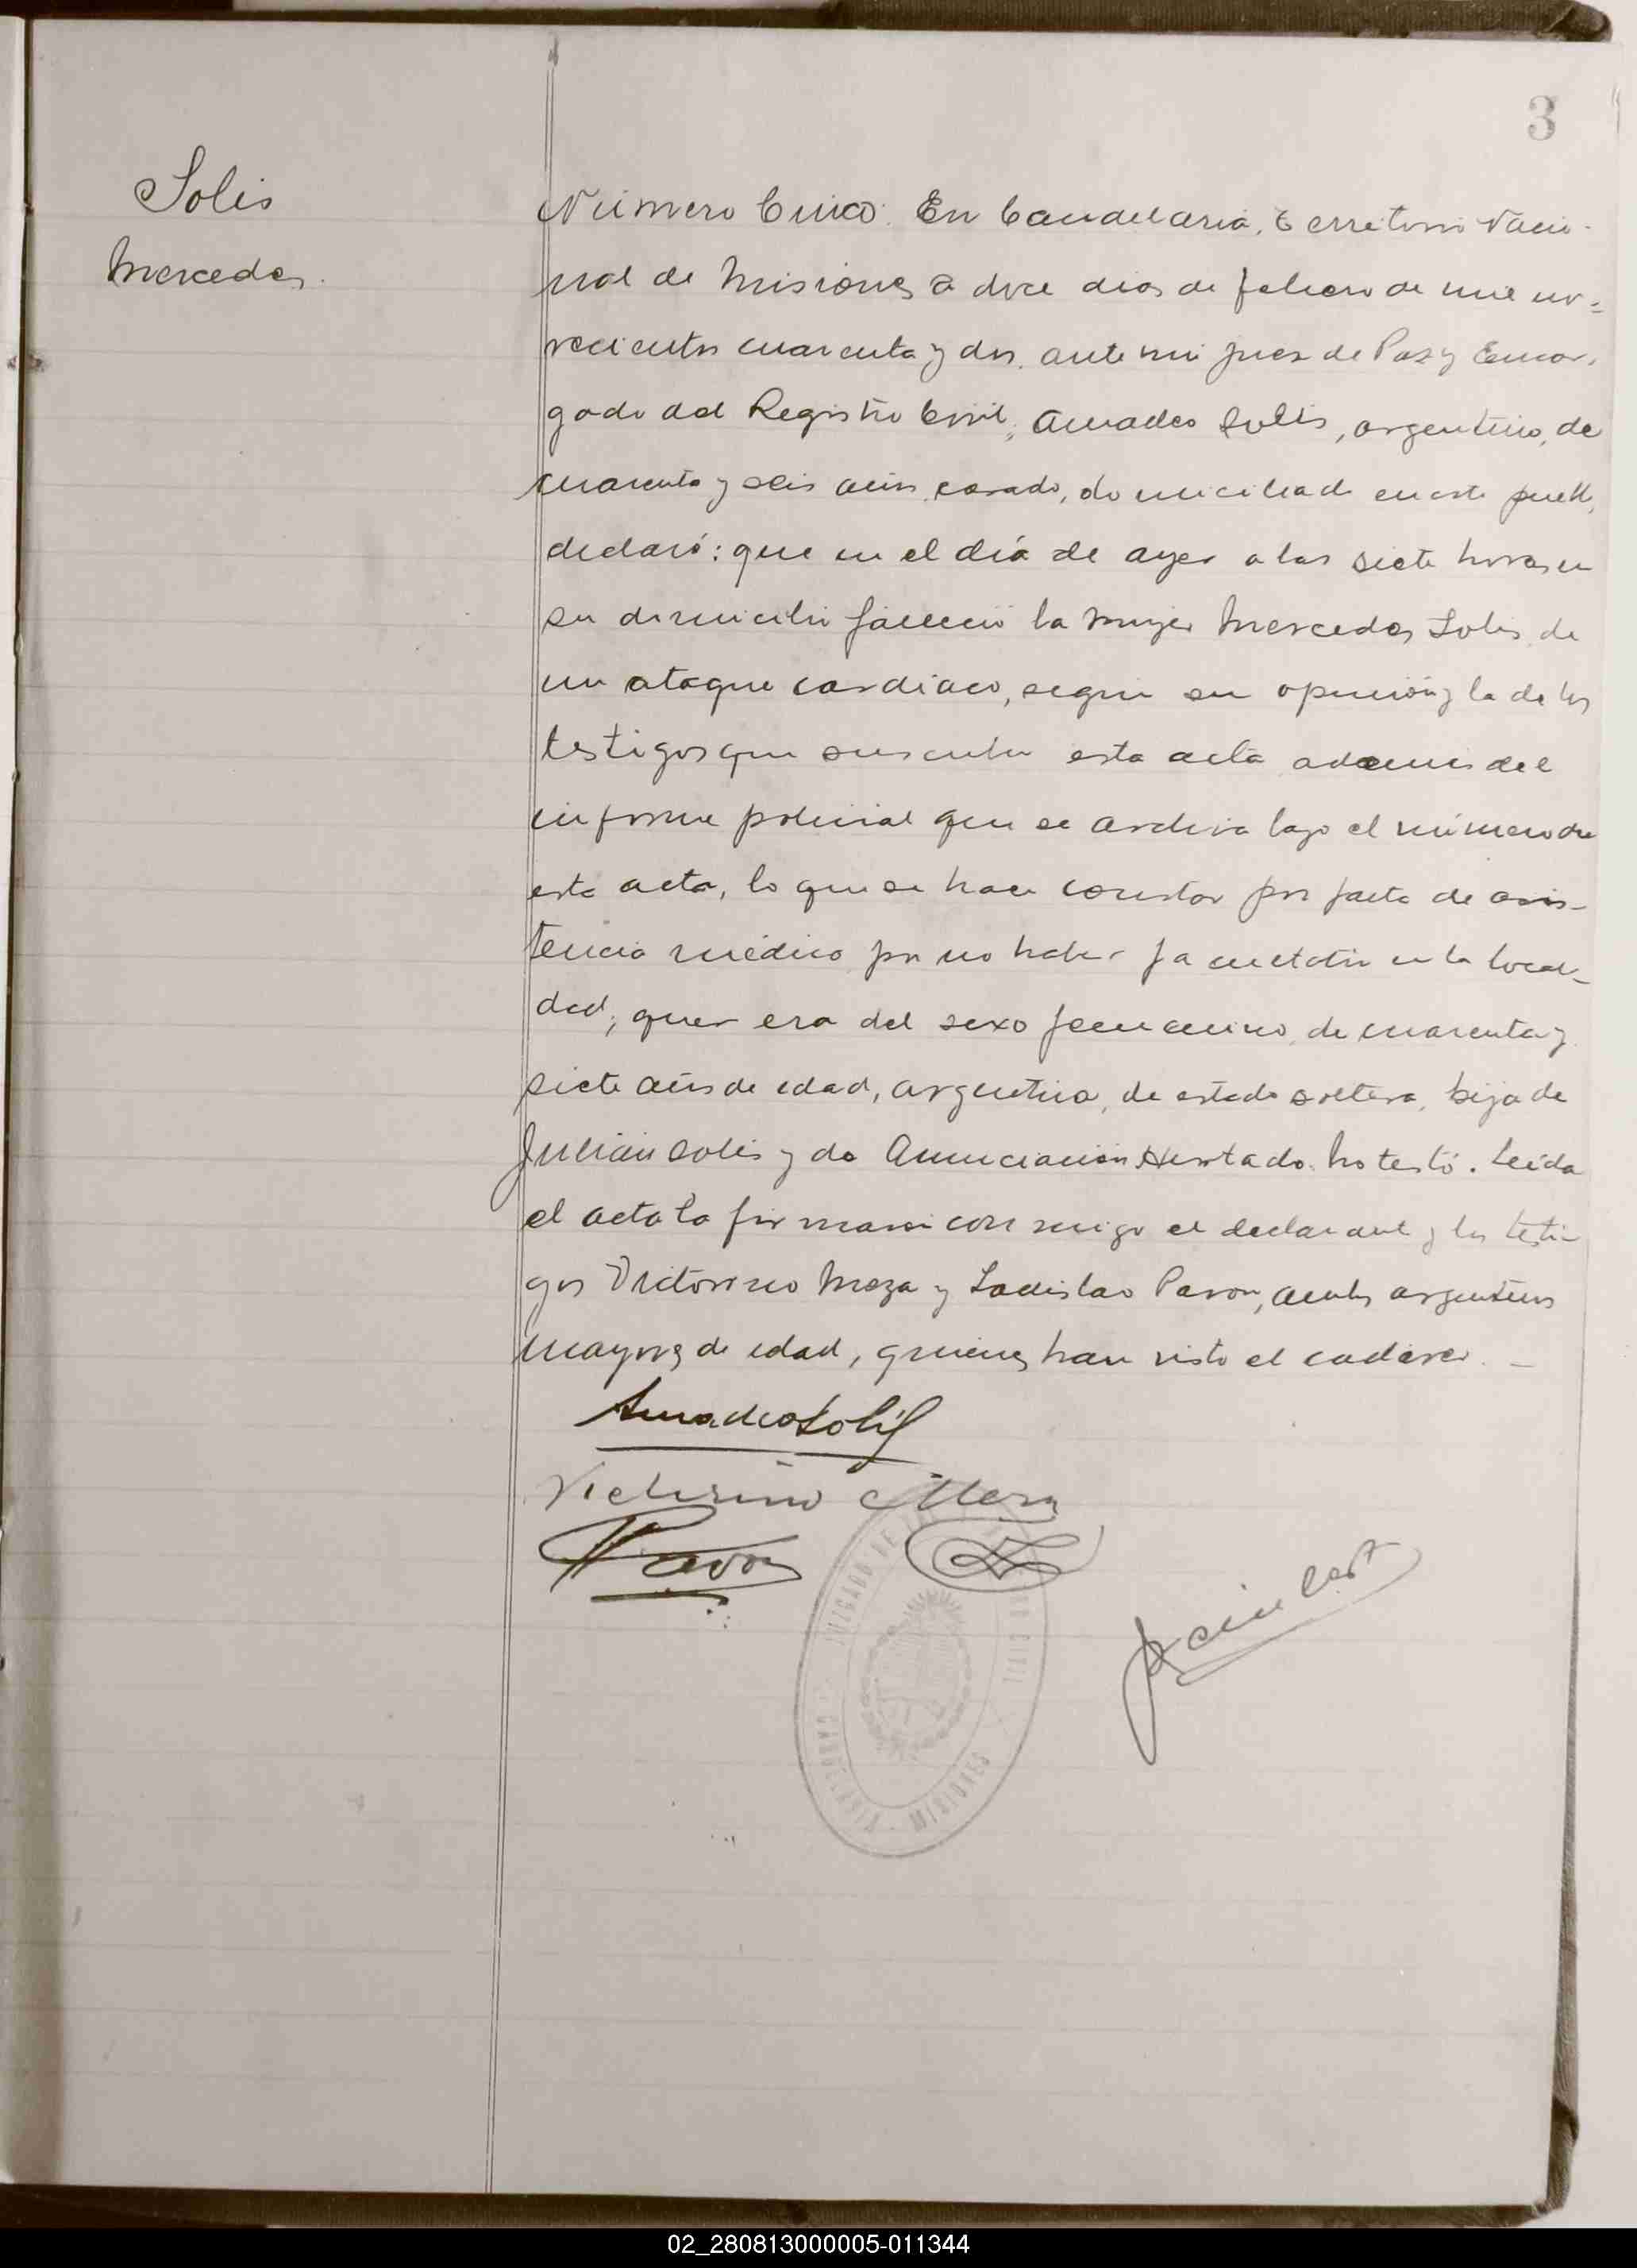 3
Solis
Mercedes.
Número Cinco. En Candelaria, Territorio Nacio-
nal de Misiones a doce dias de febrero de mil no-
vecientos cuarenta y dos, ante mi Juez de Paz y Encar-
gado del Registro Civil, Amadeo Solis, argentino, de
cuarenta y seis años, casado, domiciliado en este pueblo,
declaró: que en el día de ayer a las siete horas en
su domicilio falleció la mujer Mercedes Solis, de
un ataque cardiaco, según su opinión y la de los
testigos que suscriben esta acta, además del
informe policial que se archiva bajo el número de
esta acta, lo que se hace constar por falta de asis-
tencia médica por no haber facultativo en la locali-
dad; que era del sexo femenino, de cuarenta y
siete años de edad, argentina, de estado soltera, hija de
Julián Solis y de Anunciación Hurtado. No testó. Leída
el acta la firman conmigo el declarante y los testi-
gos Victorino Meza y Ladislao Pavon, ambos argentinos
mayores de edad, quienes han visto el cadáver. —
Amadeo Solis
Victorino Meza
Pavon
JUZGADO DE CIVIL
CANDELARIA - MISIONES
02_280813000005-011344